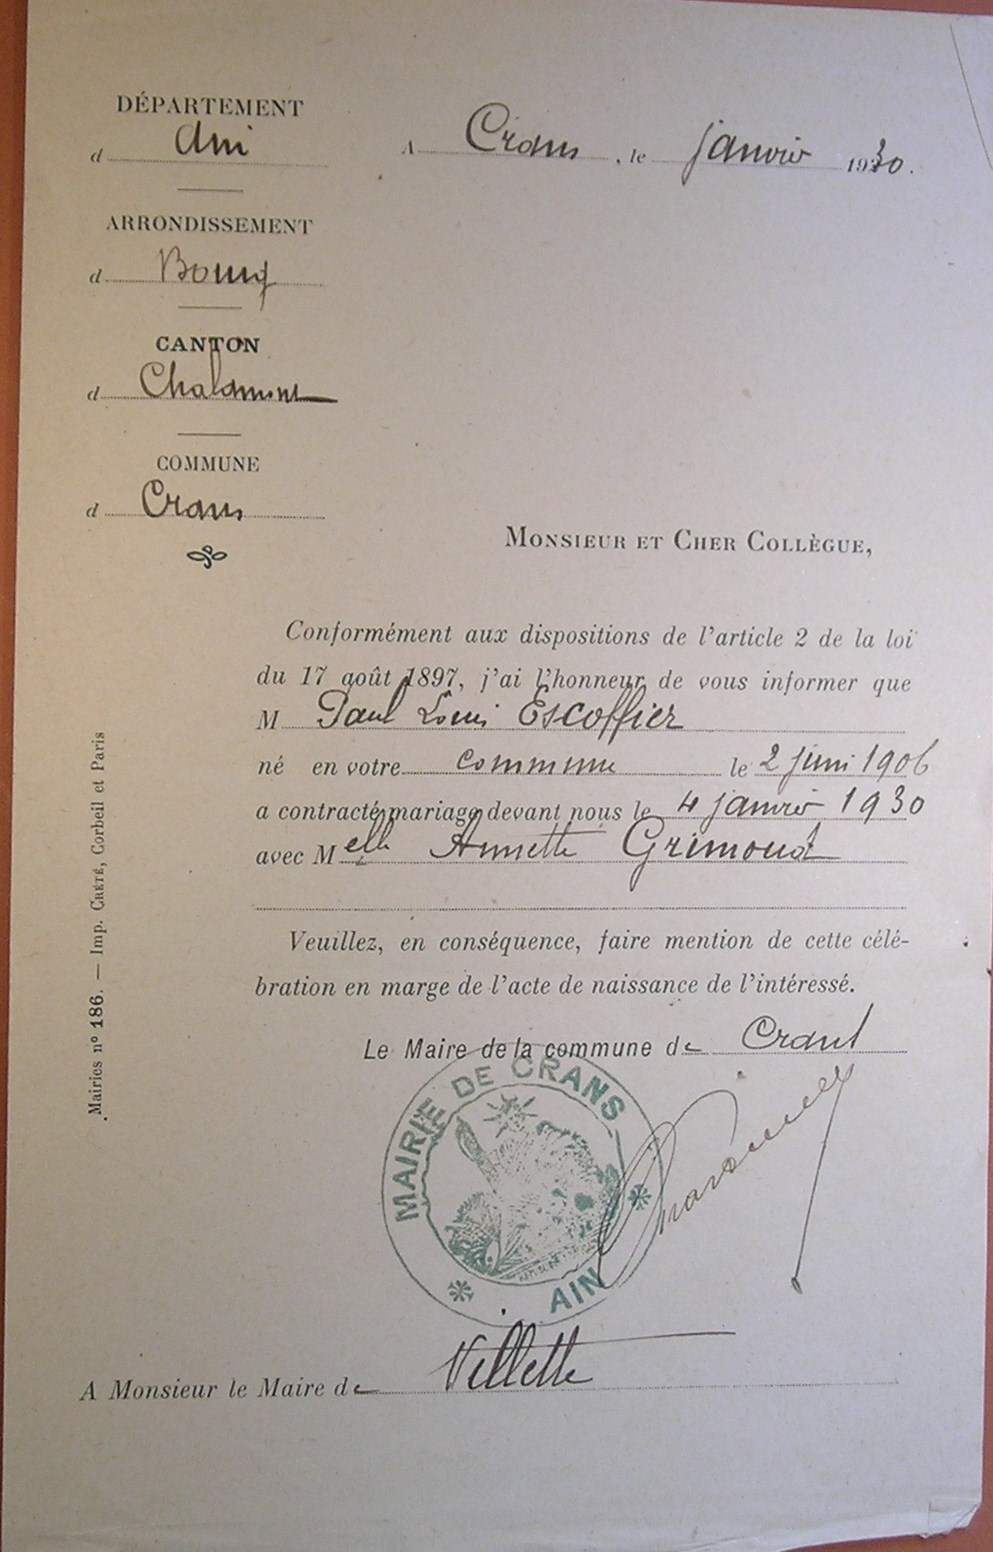 DÉPARTEMENT
d Ain
A Crans, le janvier 1930.
ARRONDISSEMENT
d Bourg
CANTON
d Chalamont
COMMUNE
d Crans
MONSIEUR ET CHER COLLÈGUE,
Conformément aux dispositions de l'article 2 de la loi
du 17 août 1897, j'ai l'honneur de vous informer que
M Paul Louis Escoffier
né en votre commune le 2 juin 1906
a contracté mariage devant nous le 4 janvier 1930
avec Melle Annette Grimoud
Veuillez, en conséquence, faire mention de cette célé-
bration en marge de l'acte de naissance de l'intéressé.
Le Maire de la commune de Crans
MAIRIE DE CRANS
AIN
A Monsieur le Maire de Villette
Mairies nº 186. — Imp. CRÉTÉ, Corbeil et Paris